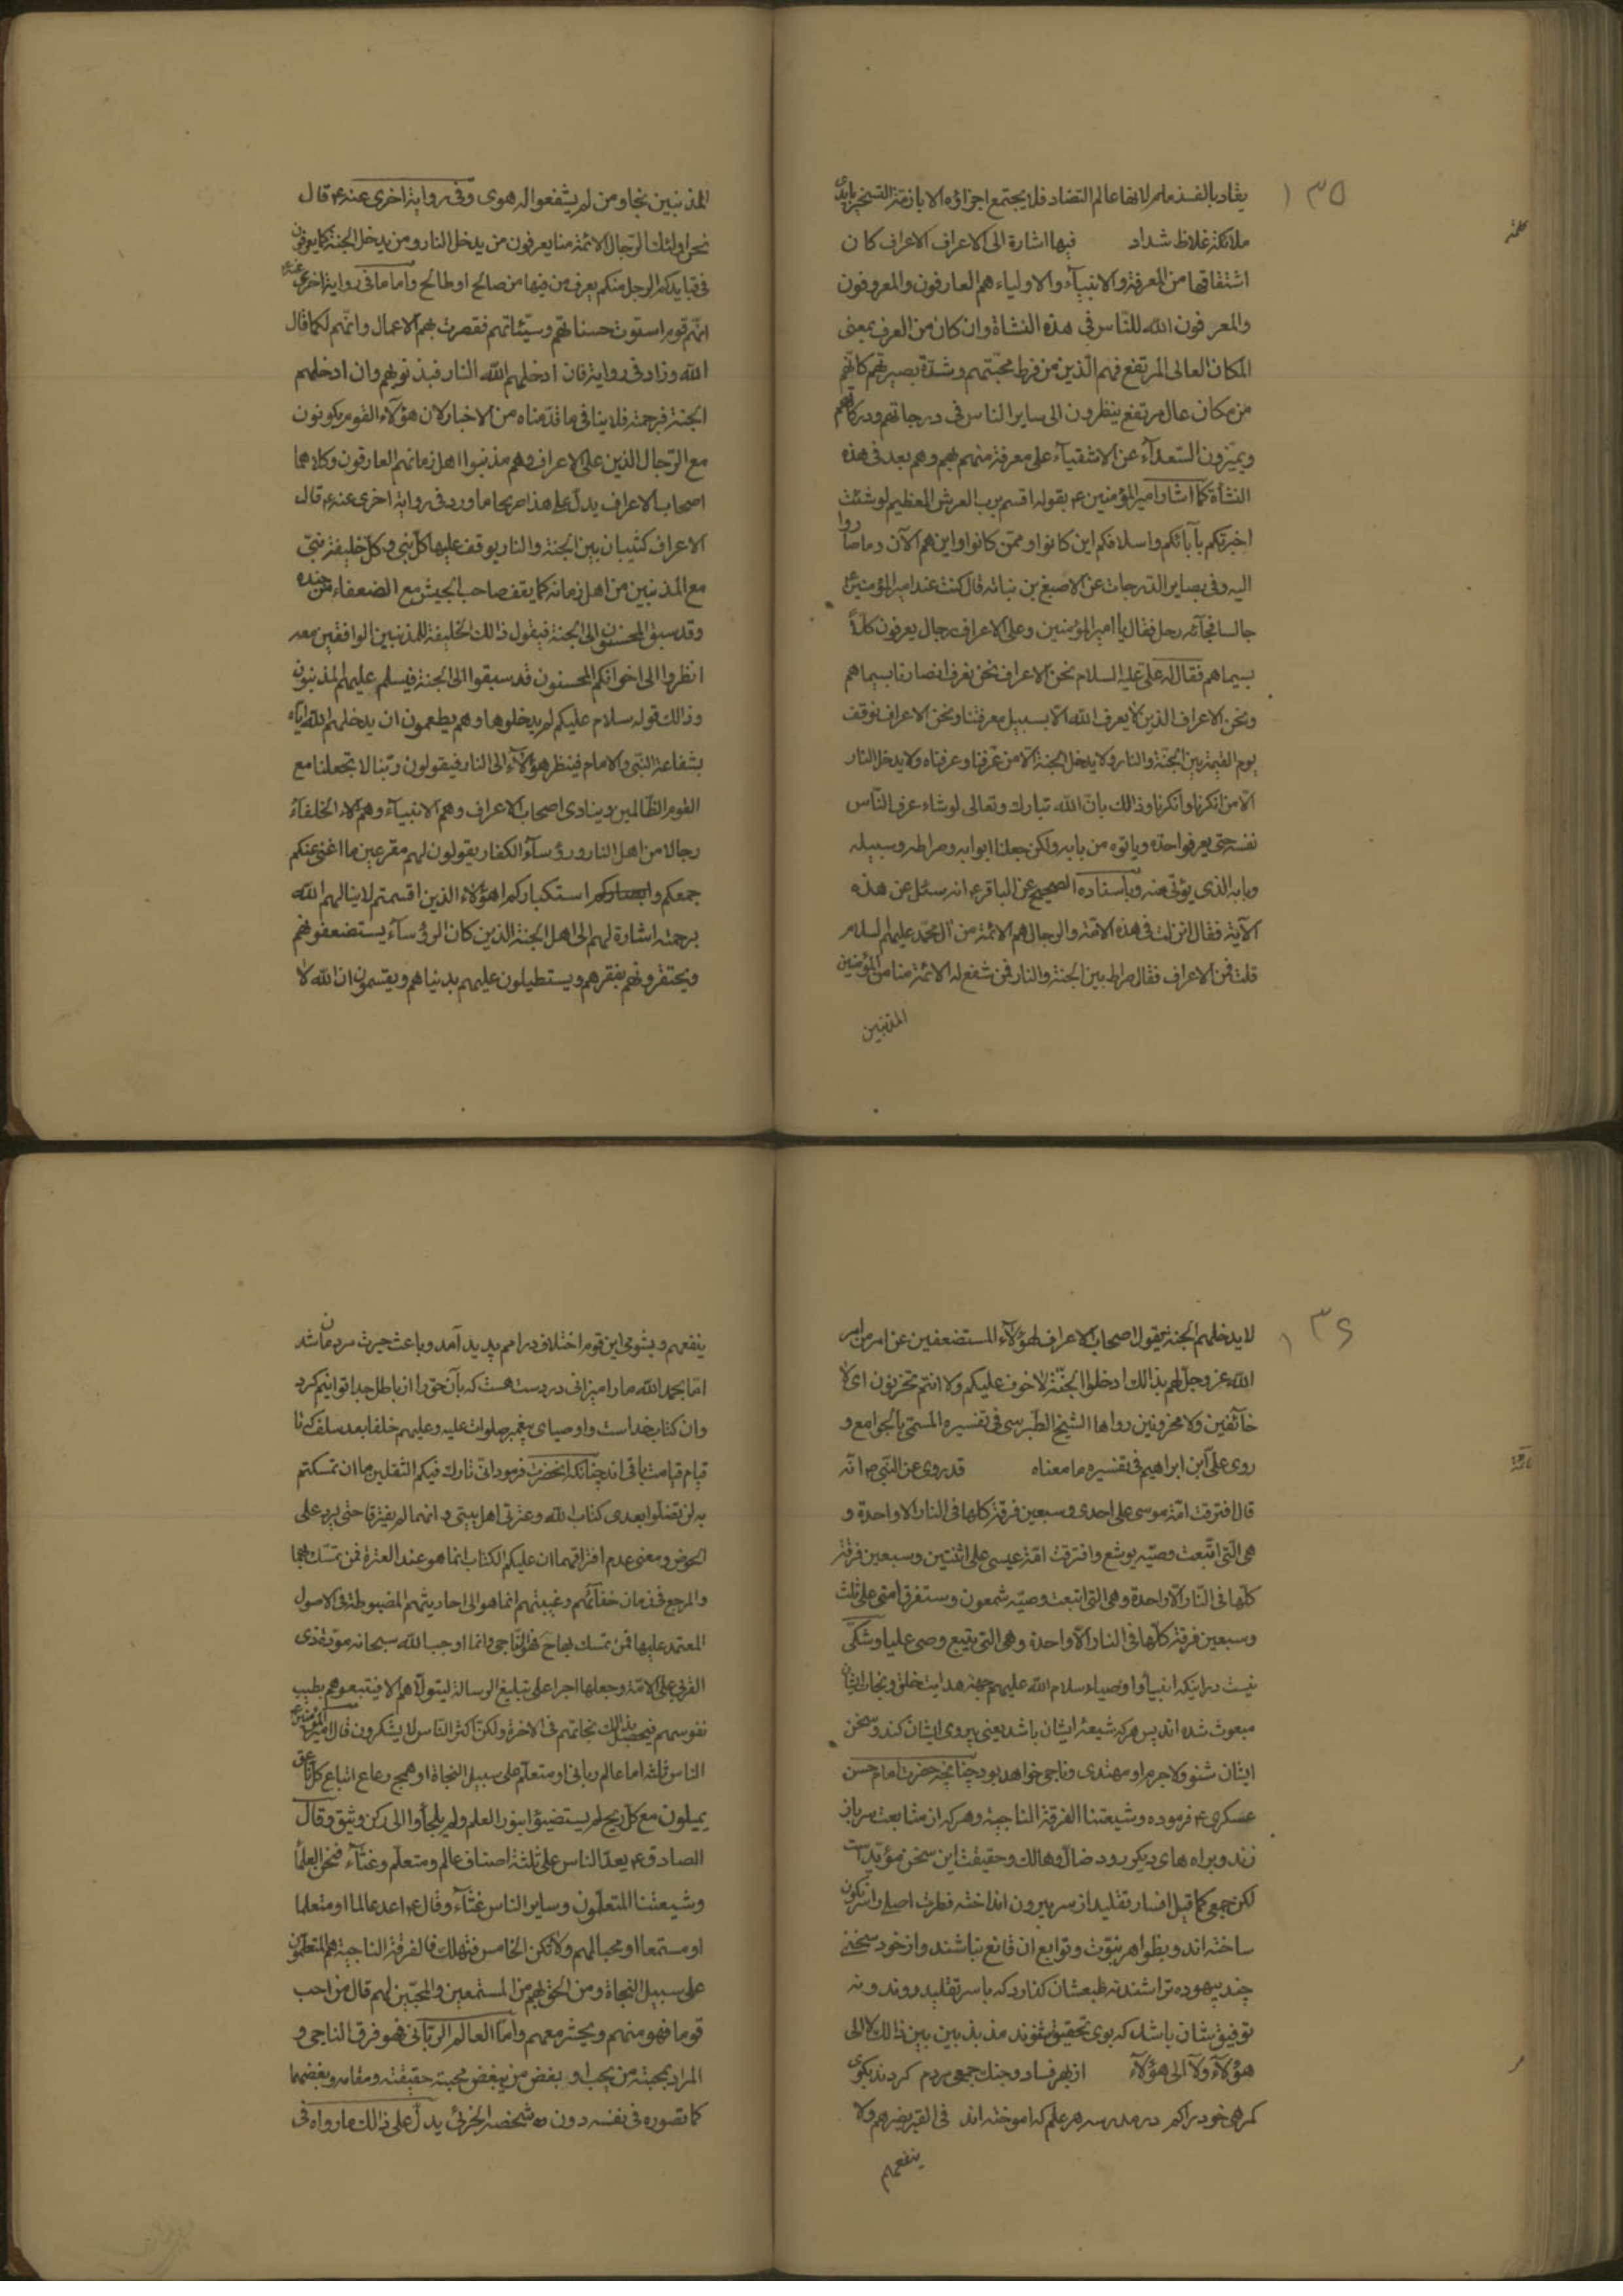 ١٣٥
يقاد بالف زمام لانها عالم التضاد فلا يجتمع اجزاؤه الا بازمة التسخير بايدى
ملائكة غلاظ شداد فيها اشارة الى الاعراف الاعراف كان
كلمة
اشتقاقها من المعرفة والانبيآء والاولياء هم العارفون والمعروفون
والمعرفون الله للناس فى هذه النشاة وان كان من العرف بمعنى
المكان العالى المرتفع فهم الذين من فرط محبّتهم وشدّة بصيرتهم كانّهم
من مكان عال مرتفع ينظرون الى ساير الناس فى درجاتهم ودركاتهم
ويميّزون السّعدآء عن الاشقيآء على معرفة منهم بهم وهم بعد فى هذه
النشأة كما اشار امير المؤمنين ع بقوله اقسم برب العرش العظيم لو شئت
اخبرتكم بآبائكم واسلافكم اين كانوا وممّن كانوا واين هم الآن وما صاروا
اليه وفى بصاير الدّرجات عن الاصبغ بن نباته قال كنت عند امير المؤمنين ع
جالسا فجآئه رجل فقال يا امير المؤمنين وعلى الاعراف رجال يعرفون كلاًّ
بسيماهم فقال له على عليه السلام نحن الاعراف نحن نعرف انصارنا بسيماهم
ونحن الاعراف الذين لا يعرف الله الّا بسبيل معرفتنا ونحن الاعراف نوقف
يوم القيمة بين الجنّة والنار ولا يدخل الجنة الّا من عرّفنا وعرفناه ولا يدخل النار
الّا من انكرنا وانكرناه وذالك بانّ الله تبارك وتعالى لو شاء عرف النّاس
نفسه حتى يعرفوا حدّه وياتوه من بابه ولكن جعلنا ابوابه وصراطه وسبيله
وبابه الذى يؤتى منه وباسناده الصحيح عن الباقر ع انه سئل عن هذه
الآية فقال انزلت فى هذه الامّة والرجال هم الائمّة من آل محمّد عليهم السلام
قلت فمن الاعراف فقال صراط بين الجنة والنار فمن شفع له الائمّة منا من المؤمنين
المذنبين
المذنبين نجا ومن لم يشفعوا له هوى وفى رواية اخرى عنه ع قال
نحن اولئك الرّجال الائمّة منا يعرفون من يدخل النار ومن يدخل الجنة كما يعرفون
فى قبايلكم الرجل منكم يعرف من فيها من صالح او طالح واما ما فى رواية اخرى عنه ع
انّهم قوم استوت حسناتهم وسيّئاتهم فقصرت بهم الاعمال وانّهم لكما قال
الله وزاد فى رواية فان ادخلهم الله النار فبذنوبهم وان ادخلهم
الجنة فبرحمته فلا ينافى ما قدّمناه من الاخبار لان هؤلاء القوم يكونون
مع الرّجال الذين على الاعراف وهم مذنبوا اهل زمانهم العارفون وكلاهما
اصحاب الاعراف يدلّ على هذا صريحا ما ورد فى رواية اخرى عنه ع قال
الاعراف كثبان بين الجنة والنار يوقف عليها كلّ نبى وكلّ خليفة نبىّ
مع المذنبين من اهل زمانه كما يقف صاحب الجيش مع الضعفاء من جنده
وقد سبق المحسنون الى الجنة فيقول ذالك الخليفة للمذنبين الواقفين معه
انظروا الى اخوانكم المحسنون قد سبقوا الى الجنة فيسلم عليهم المذنبون
وذالك قوله سلام عليكم لم يدخلوها وهم يطمعون ان يدخلهم الله ايّاه
بشفاعة النّبى والامام فينظر هؤلآء الى النار فيقولون ربّنا لا تجعلنا مع
القوم الظّالمين وينادى اصحاب الاعراف وهم الانبيآء وهم الا الخلفآء
رجالا من اهل النار ورؤسآء الكفار يقولون لهم مقرعين ما اغنى عنكم
جمعكم واستكباركم اهؤلاء الذين اقسمتم لا ينالهم الله
برحمته اشارة لهم الى اهل الجنة الذين كان الرؤسآء يستضعفونهم
ويحتقرونهم بفقرهم ويستطيلون عليهم بدنياهم ويقسمون ان الله لا
١٣٦
لا يدخلهم الجنة يقول اصحاب الاعراف لهؤلآء المستضعفين عن امر من امر
الله عز وجلّ لهم بذالك ادخلوا الجنّة لا خوف عليكم ولا انتم تحزنون اى لا
خآئفين ولا محزونين رواها الشيخ الطبرسى فى تفسيره المسمّى بالجوامع و
روى على ابن ابراهيم فى تفسيره ما معناه قد روى عن النّبى ص انّه
قال افترقت امّة موسى على احدى وسبعين فرقة كلها فى النار الا واحدة و
هى الّتى اتّبعت وصيّه يوشع وافترقت امّة عيسى على اثنتين وسبعين فرقة
كلّها فى النّار الّا واحدة وهى التى اتبعت وصيّه شمعون وستفرق امتى على ثلث
وسبعين فرقة كلّها فى النار الّا واحدة وهى التى يتبع وصى عليا وشكّى
نيست در اينكه انبيآء واوصياء سلام الله عليهم جهة هدايت خلق ونجات ايشان
مبعوث شده اند پس هر كه شيعۀ ايشان باشد يعنى پيروى ايشان كند وسخن
ايشان شنود لاجرم او مهتدى وناجى خواهد بود چنانچه حضرت امام حسن
عسكرى ع فرموده وشيعتنا الفرقة الناجية وهر كه از متابعت سر باز
زند وبراه هاى ديكر رود ضال وهالك وحقيقت اين سخن مؤيد است
لكن جمعى كما قيل افسار تقليد از سر بيرون انداخته فطرت اصلى را سرنكون
ساخته اند وبظواهر نبوّت وتوابع آن قانع نباشند واز خود سخنى
چند بيهوده تراشند نه طبعشان كذارد كه باسر تقليد روند ونه
توفيقشان باشد كه بوى تحقيق شنوند مذبذبين بين ذالك لا الى
هؤلآء ولا الى هؤلآء از بهر فساد وجنك جمعى مردم كردند بكوى
كمرهى خود را كم در مدرسه هر علم كه اموخته اند فى القبر يضرهم ولا
ينفعهم
ينفعهم وبشومى اين قوم اختلاف در امم پديد آمد وباعث حيرت مردمان شد
امّا بحمد الله ما را ميزانى در دست هست كه بآن حق را از باطل جدا توانيم كرد
وان كتاب خداست واوصياى پيغمبر صلوات عليه وعليهم خلفا بعد سلف كه تا
قيام قيامت باقى اند چنانكه انحضرت فرمود انّى تارك فيكم الثقلين ما ان تمسكتم
به لن تضلّوا بعدى كتاب الله وعترتى اهل بيتى وانهما لم يفترقا حتى يردا على
الحوض ومعنى عدم افتراقهما ان عليكم الكتاب انما هو عند العترة فمن تمسّك بهما
والمرجع فى زمان خفآئهم وغيبتهم انما هو الى احاديثهم المضبوطة فى الاصول
المعتمد عليها فمن تمسك بها ح فهو النّاجى وانما اوجب الله سبحانه مودّة ذى
القربى على الامّة وجعلها اجرا على تبليغ الرسالة ليتولّاهم الا فيتبعوهم بطيب
نفوسهم فيحصل بذالك نجاتهم فى الاخرة ولكنّ اكثر النّاس لا يشكرون قال امير المؤمنين ع
الناس ثلثه اما عالم ربانى او متعلّم على سبيل النجاة او همج رعاع اتباع كلّ ناعق
يميلون مع كلّ ريح لم يستضيئوا بنور العلم ولم يلجأوا الى ركن وثيق وقال
الصادق ع يعدّ الناس على ثلثة اصناف عالم ومتعلّم وغثآء فنحن العلمآ
وشيعتنا المتعلّمون وساير الناس غثآء وقال ع اغد عالما او متعلما
او مستمعا او محبا لهم ولا تكن الخامس فتهلك فالفرقة الناجية هم المتعلّمون
على سبيل النجاة ومن الحق بهم من المستمعين والمحبّين لهم قال من احب
قوما فهو منهم ويحشر معهم وامّا العالم الربّانى فهو فرق الناجى و
المراد بمحبّته من يحب او بغض من يبغض محبة حقيقته ومقامه وبغضهما
كما تصوره فى نفسه دون شخصه الجزئى يدلّ على ذالك ما رواه فى